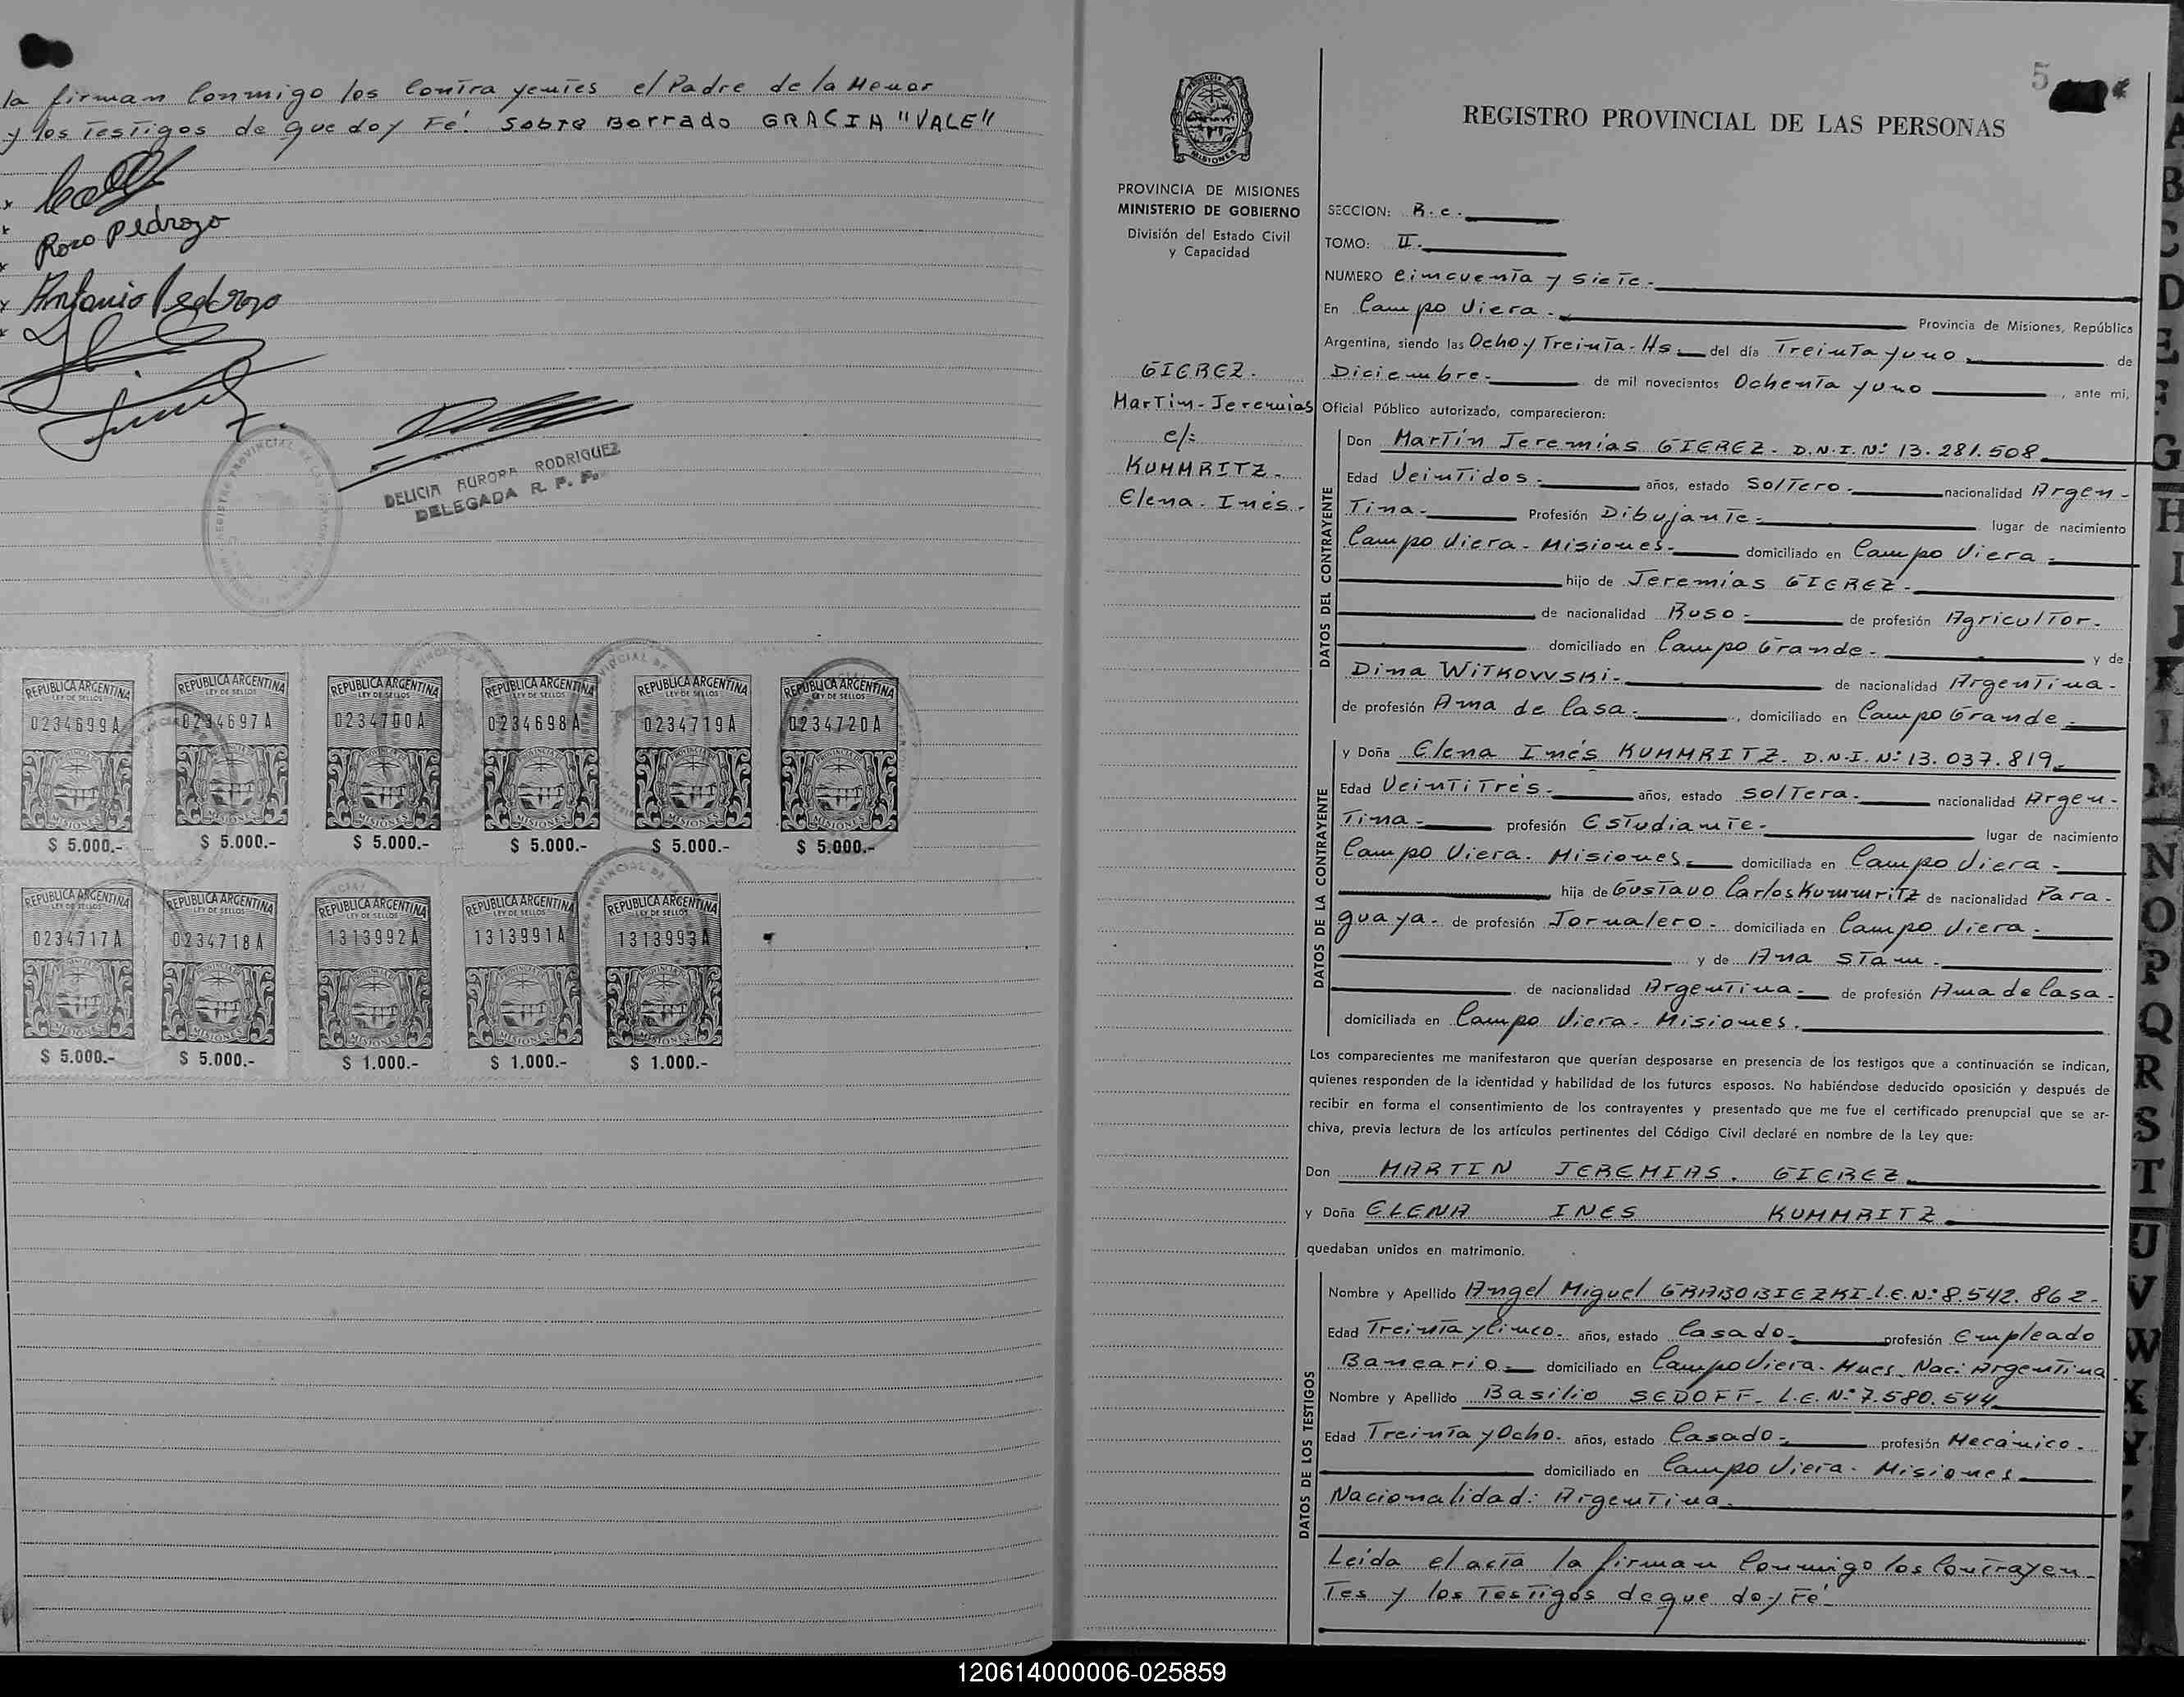 la firman Conmigo los Contrayentes el Padre de la Menor
y los Testigos de que doy Fé. Sobre Borrado GRACIA "VALE"
Pedrozo
Antonio Pedrozo
DELICIA AURORA RODRIGUEZ
DELEGADA R. P. P.
REPUBLICA ARGENTINA REPUBLICA ARGENTINA REPUBLICA ARGENTINA REPUBLICA ARGENTINA REPUBLICA ARGENTINA REPUBLICA ARGENTINA
LEY DE SELLOS LEY DE SELLOS LEY DE SELLOS LEY DE SELLOS LEY DE SELLOS LEY DE SELLOS
0234699A 0234697A 0234700A 0234698A 0234719A 0234720A
MISIONES MISIONES MISIONES MISIONES MISIONES MISIONES
$ 5.000.- $ 5.000.- $ 5.000.- $ 5.000.- $ 5.000.- $ 5.000.-
REPUBLICA ARGENTINA REPUBLICA ARGENTINA REPUBLICA ARGENTINA REPUBLICA ARGENTINA REPUBLICA ARGENTINA
LEY DE SELLOS LEY DE SELLOS LEY DE SELLOS LEY DE SELLOS LEY DE SELLOS
0234717A 0234718A 1313992A 1313991A 1313993A
MISIONES MISIONES MISIONES MISIONES MISIONES
$ 5.000.- $ 5.000.- $ 1.000.- $ 1.000.- $ 1.000.-
5
MISIONES
PROVINCIA DE MISIONES
MINISTERIO DE GOBIERNO
División del Estado Civil
y Capacidad
GIEREZ.
Martin-Jeremias
c/:
KUMMRITZ.
Elena. Inés.
REGISTRO PROVINCIAL DE LAS PERSONAS
SECCION: R.c.
TOMO: II.
NUMERO Cincuenta y Siete.
En Campo Viera. Provincia de Misiones, República
Argentina, siendo las Ocho y Treinta-Hs del día Treinta y uno de
Diciembre. de mil novecientos Ochenta y uno, ante mi,
Oficial Público autorizado, comparecieron:
DATOS DEL CONTRAYENTE
Don Martín Jeremías GIEREZ. D.N.I.Nº 13.281.508
Edad Veintidos. años, estado Soltero. nacionalidad Argen-
Tina. Profesión Dibujante. lugar de nacimiento
Campo Viera. Misiones. domiciliado en Campo Viera.
hijo de Jeremías GIEREZ.
de nacionalidad Ruso. de profesión Agricultor.
domiciliado en Campo Grande. y de
Dina WITKOWSKI. de nacionalidad Argentina.
de profesión Ama de Casa., domiciliado en Campo Grande.
DATOS DE LA CONTRAYENTE
y Doña Elena Inés KUMMRITZ. D.N.I.Nº 13.037.819
Edad Veintitrés. años, estado Soltera. nacionalidad Argen-
Tina. profesión Estudiante. lugar de nacimiento
Campo Viera. Misiones. domiciliada en Campo Viera.
hija de Gustavo Carlos Kummritz de nacionalidad Para-
guaya. de profesión Jornalero. domiciliada en Campo Viera.
y de Ana Stam.
de nacionalidad Argentina. de profesión Ama de Casa.
domiciliada en Campo Viera. Misiones.
Los comparecientes me manifestaron que querían desposarse en presencia de los testigos que a continuación se indican,
quienes responden de la identidad y habilidad de los futuros esposos. No habiéndose deducido oposición y después de
recibir en forma el consentimiento de los contrayentes y presentado que me fue el certificado prenupcial que se ar-
chiva, previa lectura de los artículos pertinentes del Código Civil declaré en nombre de la Ley que:
Don MARTIN JEREMIAS. GIEREZ
y Doña ELENA INES KUMMRITZ
quedaban unidos en matrimonio.
DATOS DE LOS TESTIGOS
Nombre y Apellido Angel Miguel GRABOBIEZKI. L.E.Nº 8.542.862.
Edad Treinta y Cinco. años, estado Casado. profesión Empleado
Bancario. domiciliado en Campo Viera. Mnes. Nac: Argentina
Nombre y Apellido Basilio SEDOFF. L.E.Nº 7.580.544
Edad Treinta y Ocho. años, estado Casado. profesión Mecánico.
domiciliado en Campo Viera. Misiones
Nacionalidad: Argentina.
Leída el acta la firman Conmigo los Contrayen-
Tes y los Testigos de que doy Fé.
A
B
C
D
E
F
G
H
I
J
K
L
M
N
O
P
Q
R
S
T
U
V
W
X
Y
Z
120614000006-025859